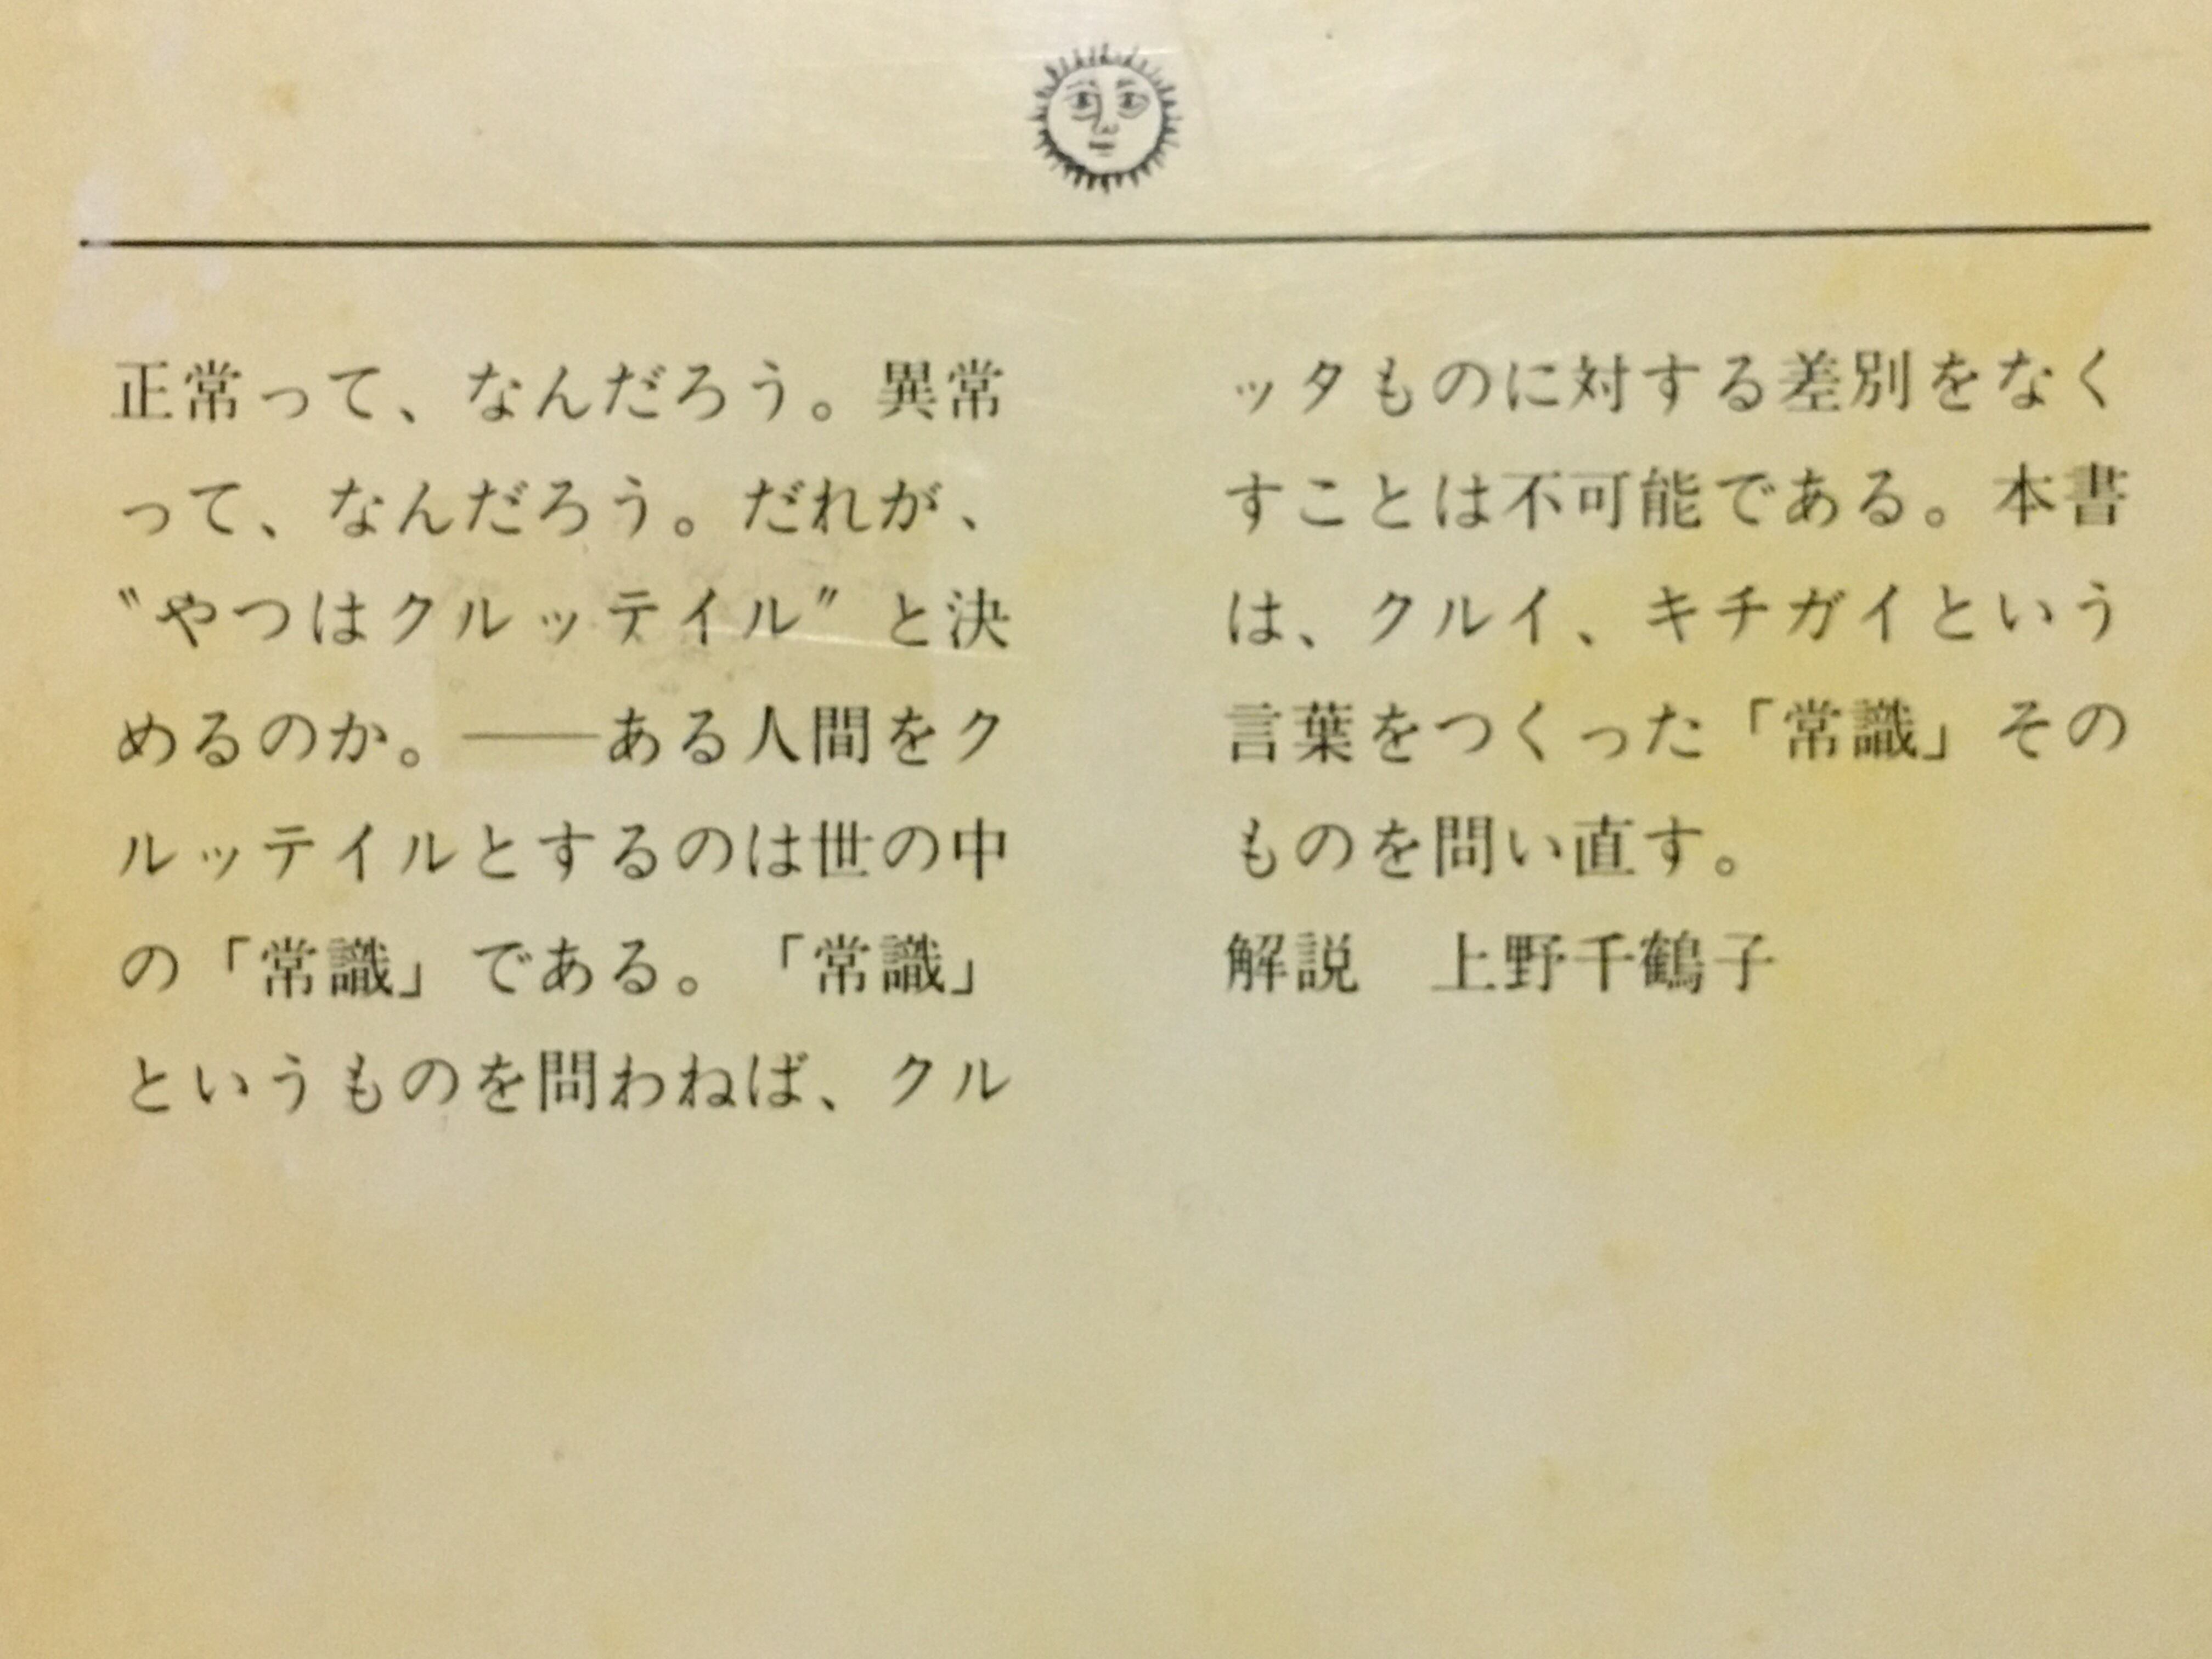 正常って、なんだろう。異常
って、なんだろう。だれが、
〝やつはクルッテイル〟と決
めるのか。――ある人間をク
ルッテイルとするのは世の中
の「常識」である。「常識」
というものを問わねば、クル
ッタものに対する差別をなく
すことは不可能である。本書
は、クルイ、キチガイという
言葉をつくった「常識」その
ものを問い直す。
解説　上野千鶴子